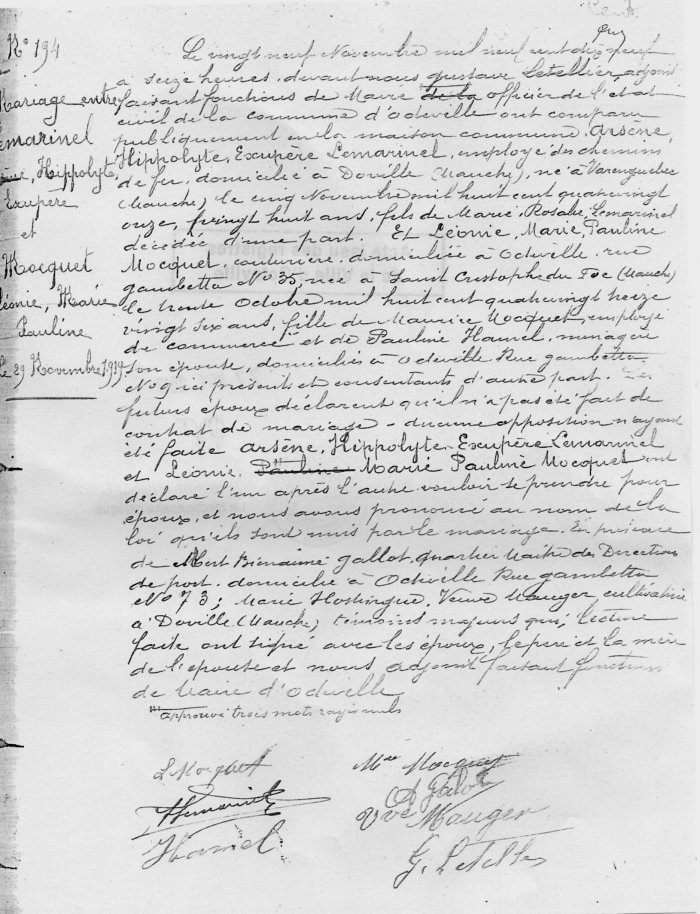 N° 194
Mariage entre
Lemarinel
Hippolyte,
Exupère
et
Mocquet
Léonie, Marie
Pauline
le 29 Novembre 1919
Le vingt neuf Novembre mil neuf cent dix neuf
a seize heures, devant nous Gustave Letellier adjoint
faisant fonctions de Maire de la officier de l'etat
civil de la commune d'Octeville ont comparu
publiquement en la maison commune, Arsène,
Hippolyte, Exupère Lemarinel, employé des chemins
de fer, domicilié à Doville (Manche), né à Varenguebec
(Manche) le cinq Novembre mil huit cent quatrevingt
onze, vingt huit ans, fils de Marie, Rosalie, Lemarinel
décédée d'une part. Et Léonie, Marie, Pauline
Mocquet, couturière, domiciliée à Octeville, rue
gambetta N° 35, née à Saint Cristophe du Foc (Manche)
le trente Octobre mil huit cent quatrevingt treize
vingt six ans, fille de Maurice Mocquet, employé
de commerce et de Pauline Hamel, ménagère
son épouse, domiciliés à Octeville Rue gambetta
N° 9 ici présents et consentants d'autre part. Les
futurs époux déclarent qu'il n'a pas été fait de
contrat de mariage - aucune opposition n'ayant
été faite Arsène, Hippolyte, Exupère Lemarinel
et Léonie, Pauline Marie Pauline Mocquet ont
déclaré l'un après l'autre vouloir se prendre pour
époux, et nous avons prononcé au nom de la
loi qu'ils sont unis par le mariage. En présence
de Albert Bienaimé Gallot, quartier Maître des Directions
de port, domicilié à Octeville Rue gambetta
N° 73; Marie Veuve Mauger, cultivatrice
à Doville (Manche) témoins majeurs qui, lecture
faite ont signé avec les époux, le père et la mère
de l'épouse et nous adjoint faisant fonctions
de Maire d'Octeville
approuvé trois mots rayés nuls
L Mocquet
Mce Mocquet
A Gallot
Vve Mauger
Hamel
G. Letellier